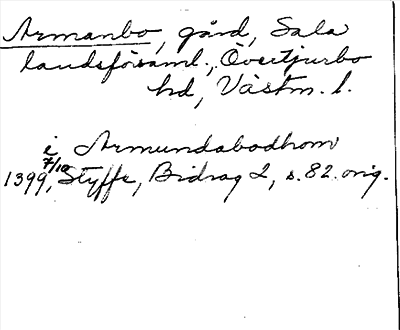 Armanbo, gård, Sala
landsförsaml., Övertjurbo
hd, Västm. l.
i Armundabodhom
1399 7/10, Styffe, Bidrag 2, s. 82. orig.